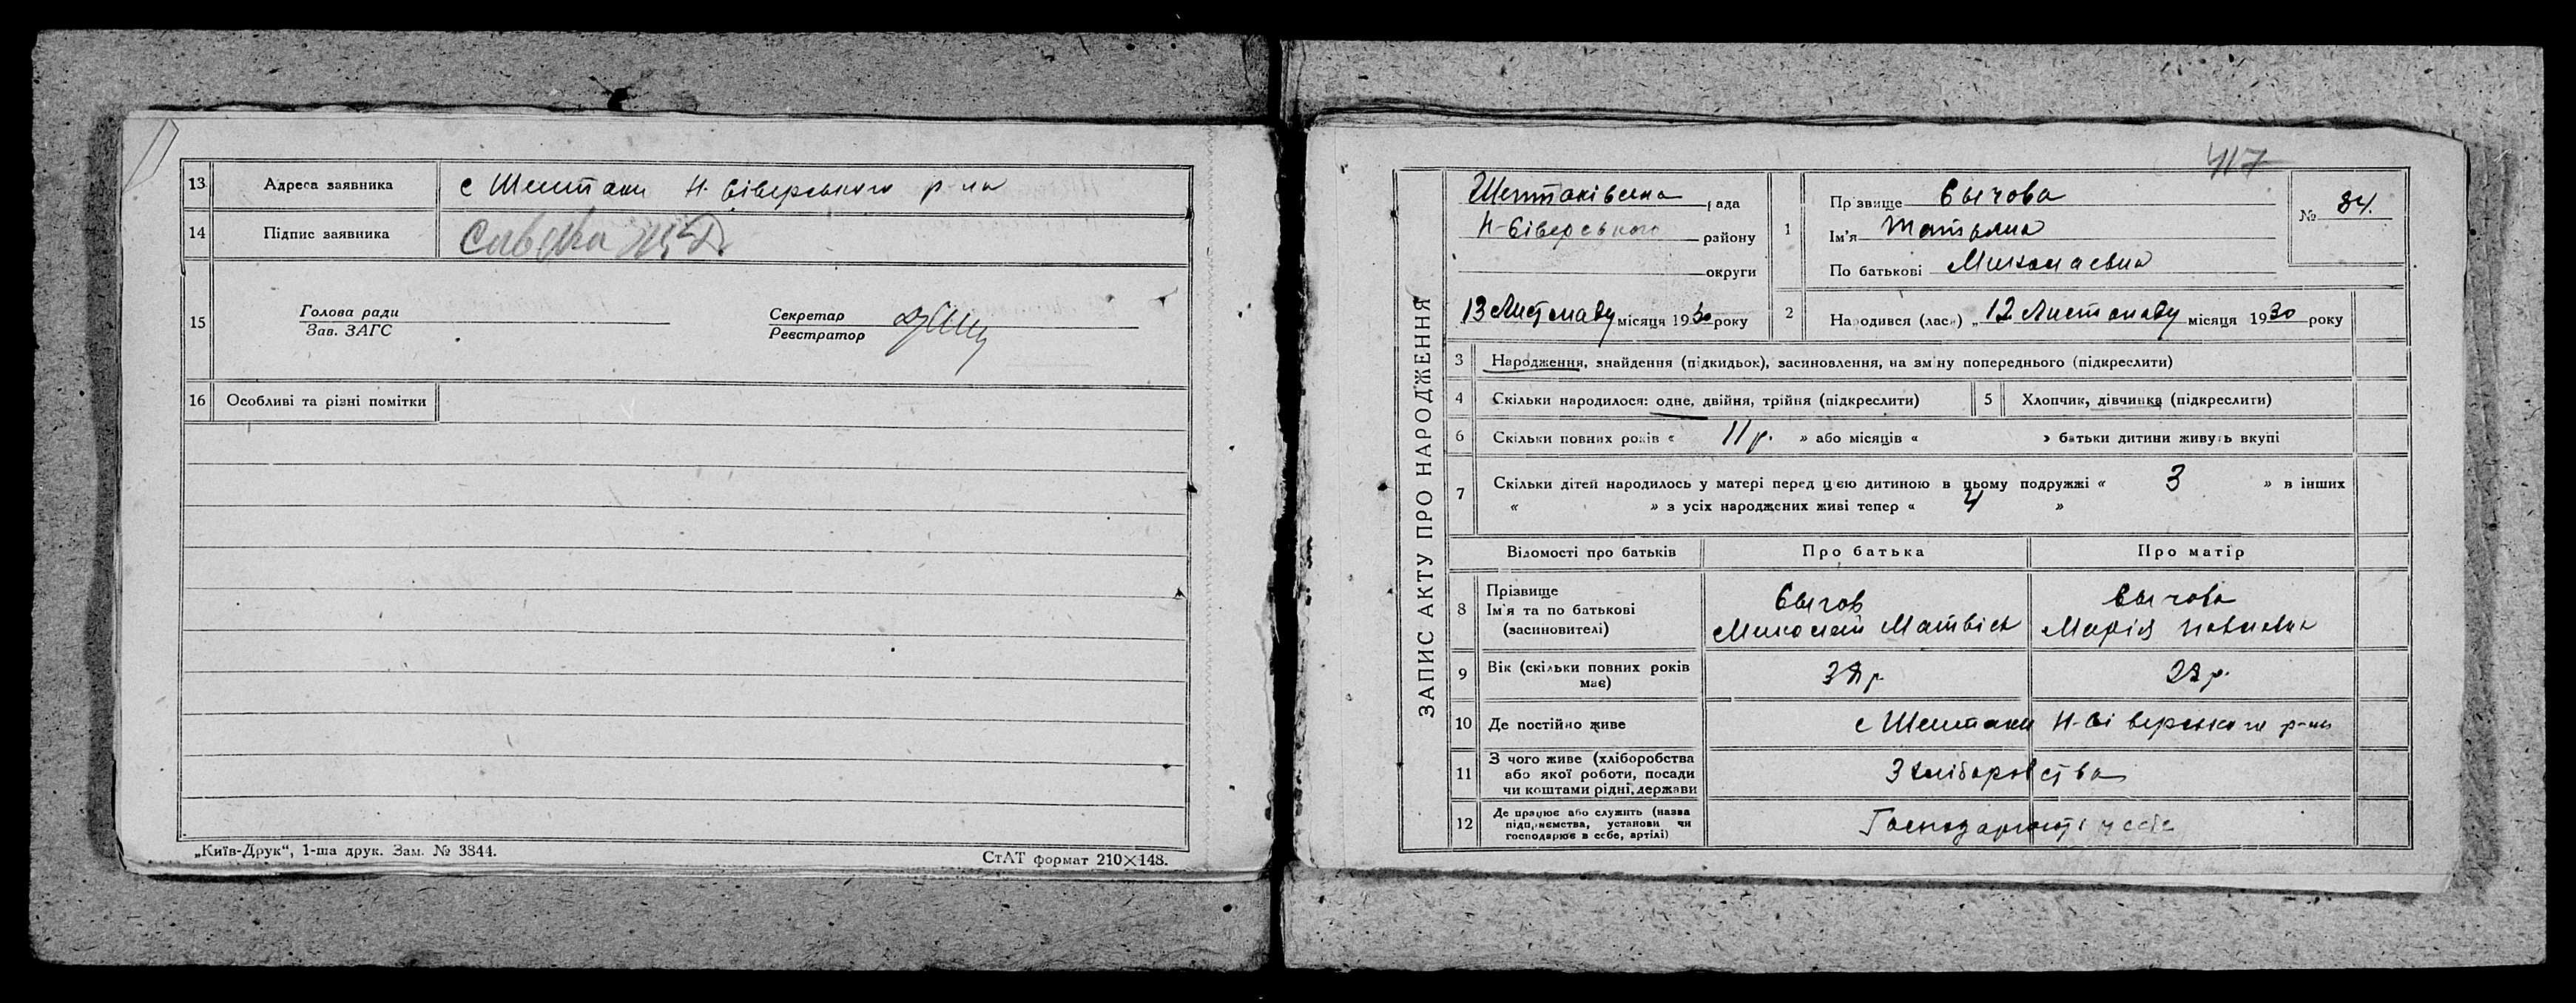 13 Адреса заявника с Шептаки Н-Сіверського р-на
14 Підпис заявника
15 Голова ради
Зав. ЗАГС
Секретар
Реєстратор
16 Особливі та різні помітки
„Київ-Друк“, 1-ша друк. Зам. № 3844.
СтАТ формат 210×148.
417
ЗАПИС АКТУ ПРО НАРОДЖЕННЯ
Шептаківська рада
Н-Сіверського району
округи
13 Листопаду місяця 1930 року
1 Прізвище Сычова
Ім'я Татьяна
По батькові Миколаевна
№ 84.
2 Народився (лась) „12 Листопаду місяця 1930 року
3 Народження, знайдення (підкидьок), засиновлення, на зміну попереднього (підкреслити)
4 Скільки народилося: одне, двійня, трійня (підкреслити)
5 Хлопчик, дівчинка (підкреслити)
6 Скільки повних років « 11 р. » або місяців « » батьки дитини живуть вкупі
7 Скільки дітей народилось у матері перед цією дитиною в цьому подружжі « 3 » в інших
« » з усіх народжених живі тепер « 4 »
Відомості про батьків Про батька Про матір
8 Прізвище
Ім'я та по батькові
(засиновителі)
Сычов
Миколай Матвієв
Сычова
Марія
9 Вік (скільки повних років
має)
10 Де постійно живе с Шептаки Н-Сіверського р-на
11 З чого живе (хліборобства
або якої роботи, посади
чи коштами рідні, держави
З хліборобства
12 Де працює або служить (назва
підприємства, установи чи
господарює в себе, артілі)
Господарюють у себе